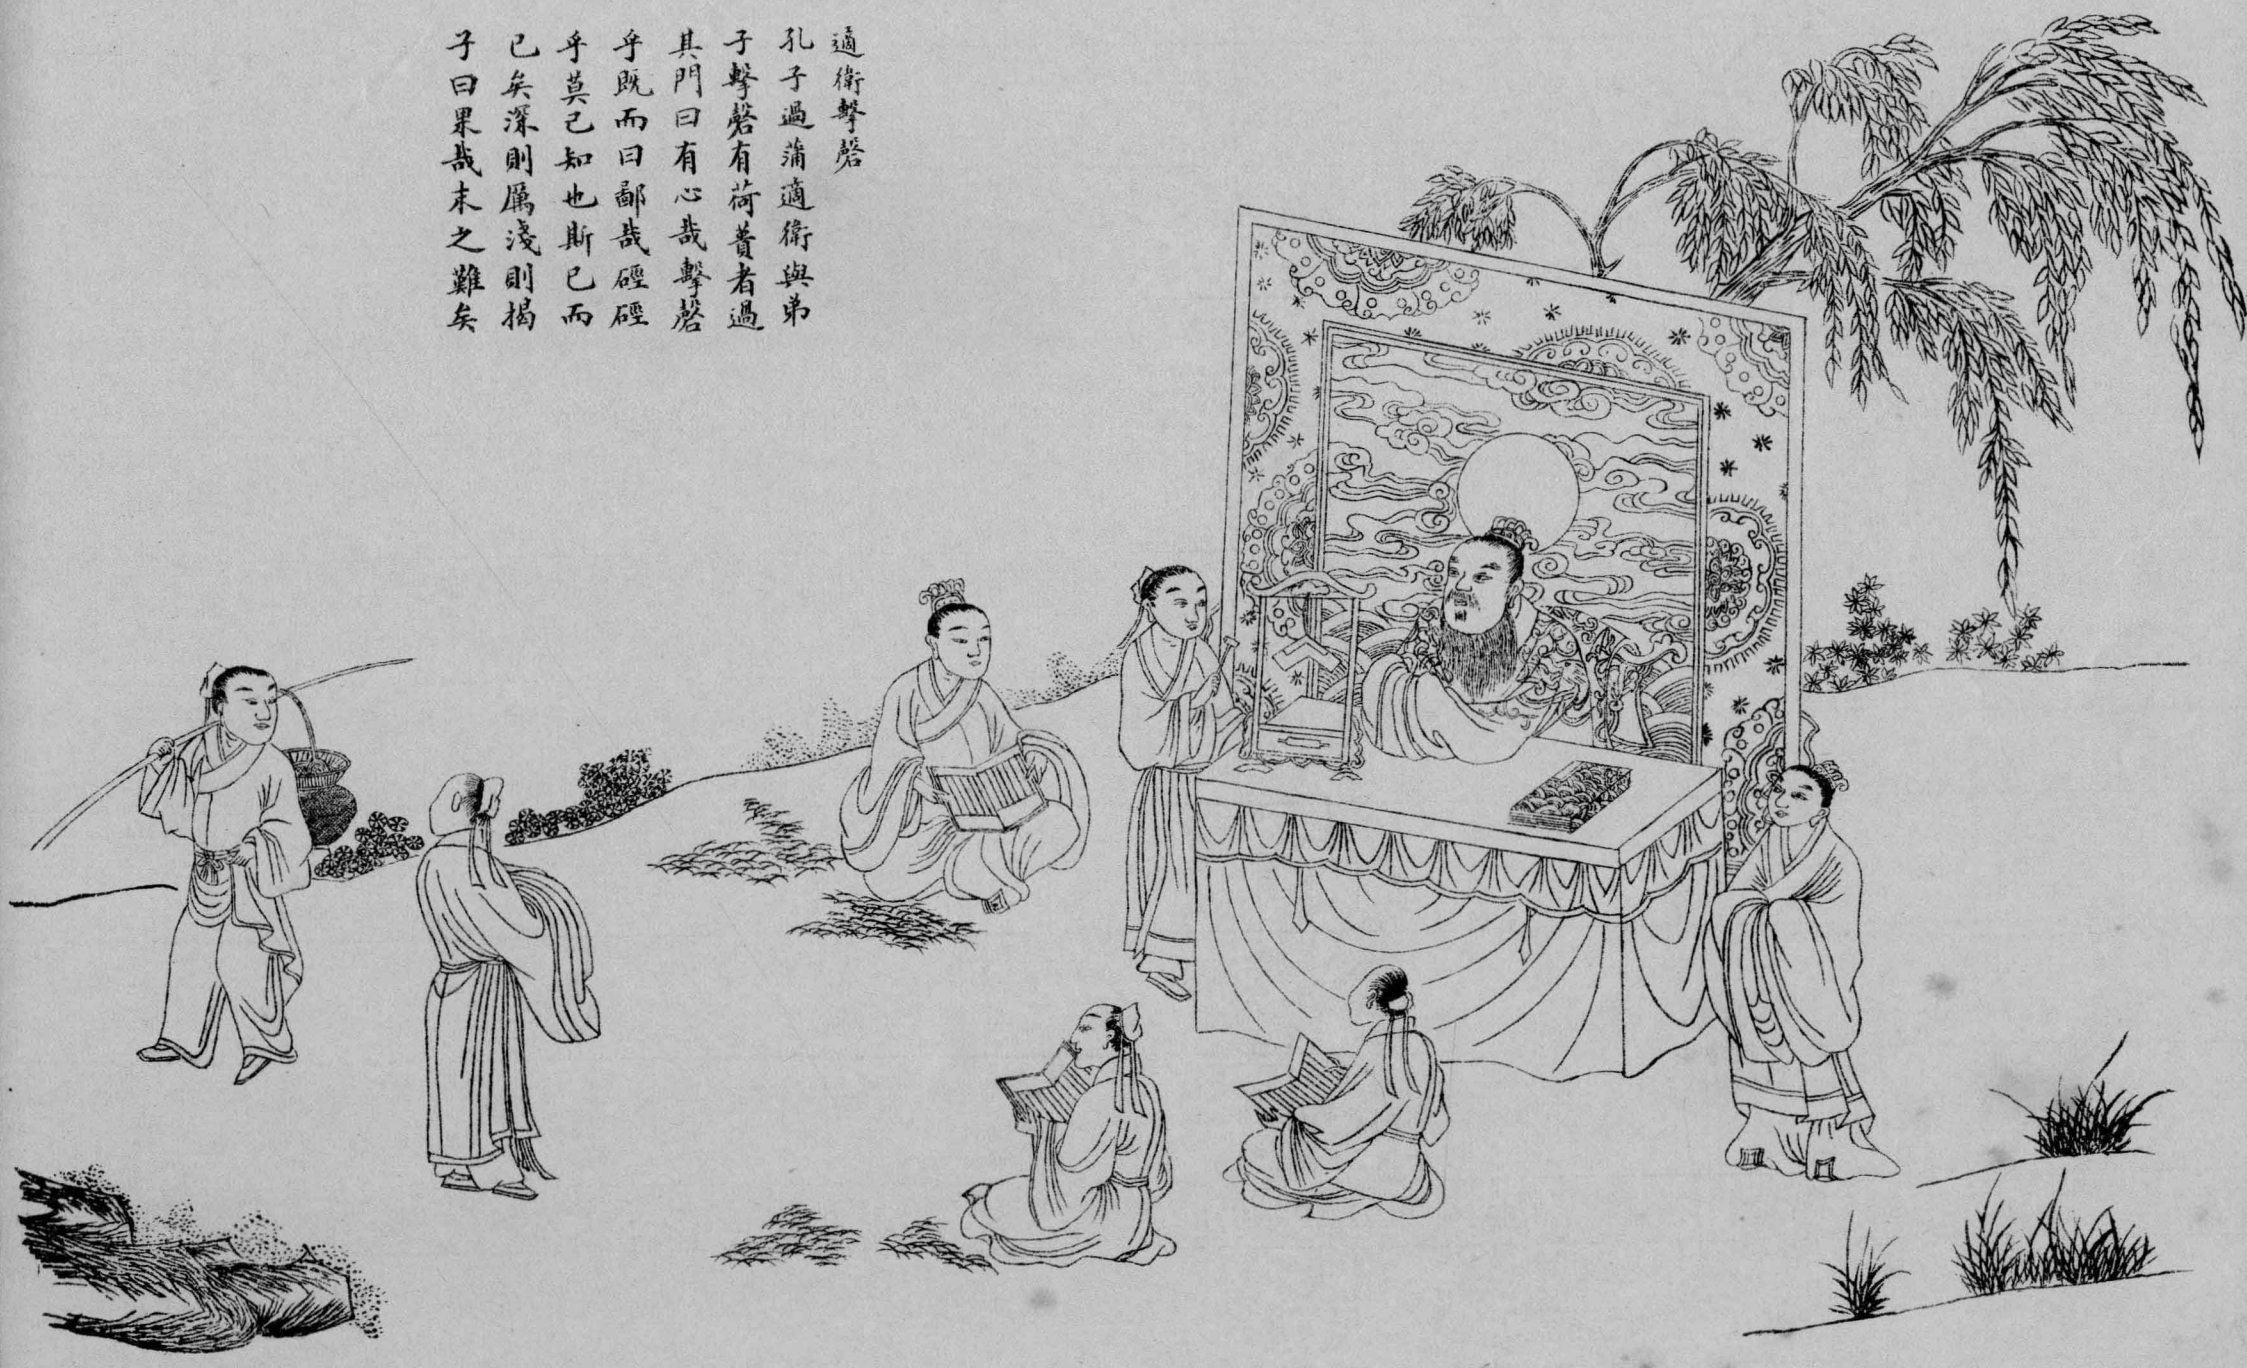 適衛擊磬
孔子過蒲適衛與弟
子擊磬有荷蕢者過
其門曰有心哉擊磬
乎既而曰鄙哉硜硜
乎莫己知也斯已而
已矣深則厲淺則揭
子曰果哉末之難矣